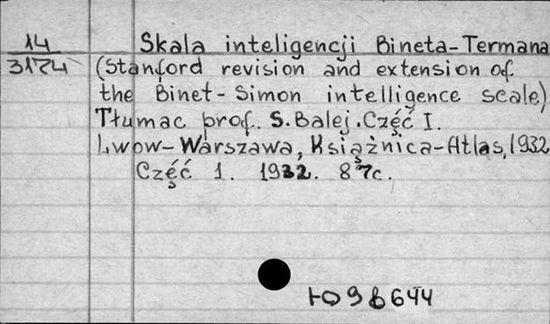 14 Skala inteligencji Bineta-Termana
3174 (Stanford revision and extension of
the Binet-Simon intelligence scale)
Tłumac prof. S. Balej. Część I.
Lwow-Warszawa, Książnica-Atlas, 1932
Część 1. 1932. 87c.
Ю98644